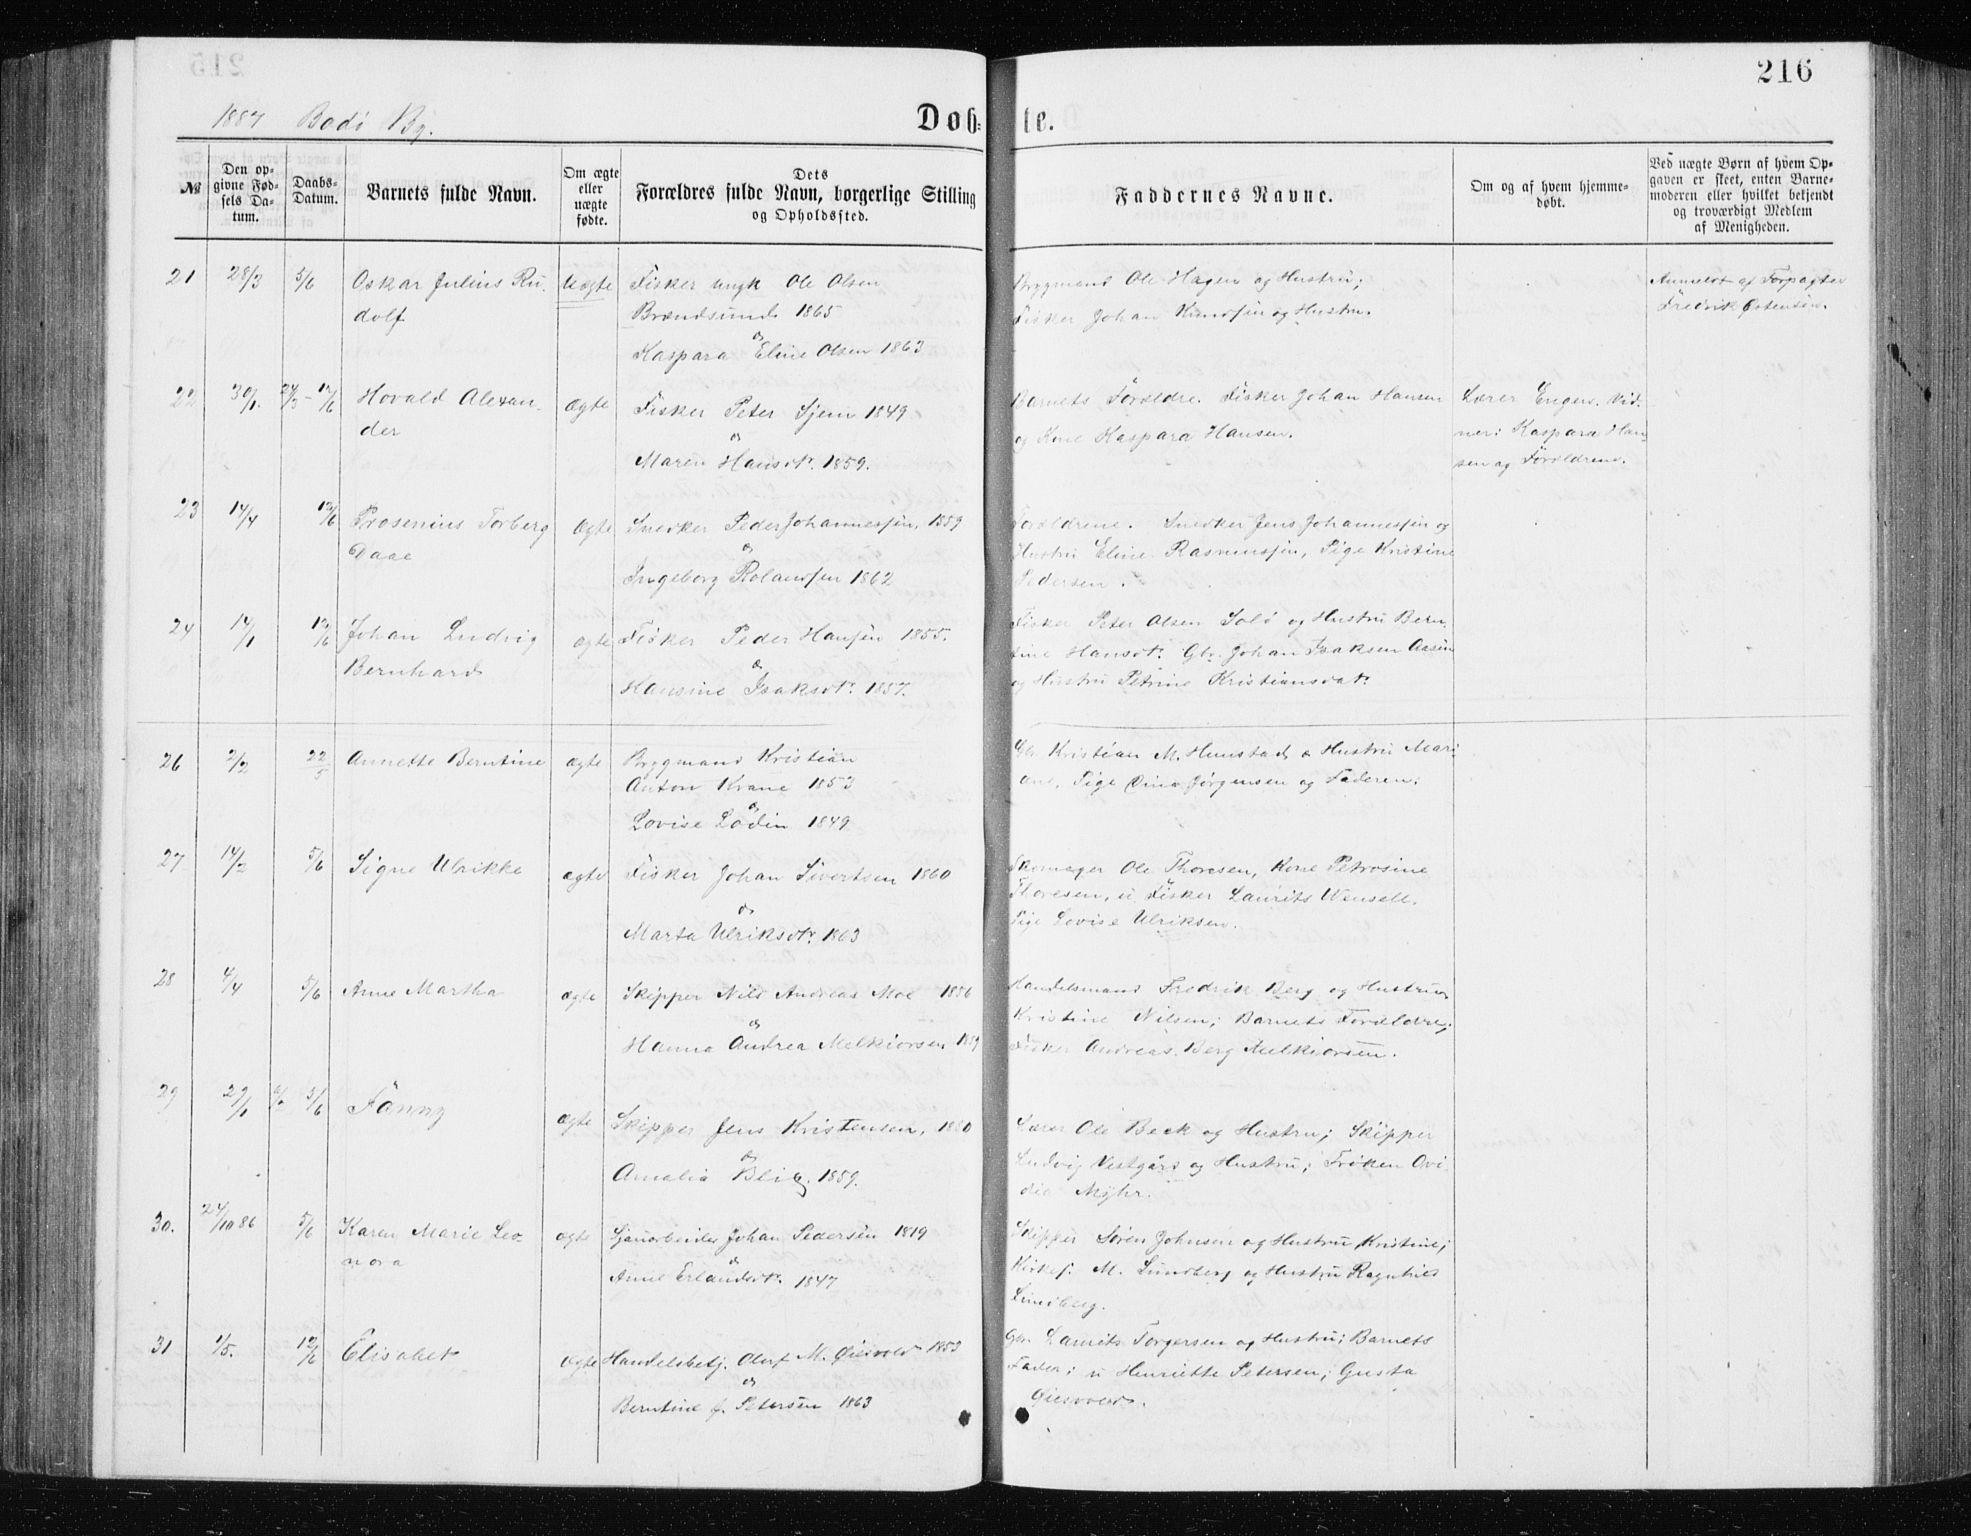 216
1887 Bodö By.
Døb= te.
№
Den op-
givne Fød-
sels Da-
tum.
Daabs-
Datum.
Barnets fulde Navn.
Om ægte
eller
uægte
fødte.
Dets
Forældres fulde Navn, borgerlige Stilling
og Opholdssted.
Faddernes Navne.
Om og af hvem hjemme-
døbt.
Ved uægte Børn af hvem Op-
gaven er skeet, enten Barne-
moderen eller hvilket bekjendt
og troværdigt Medlem
af Menigheden.
21 28/3 5/6 Oskar Julius Ru-
dolf
Uægte
Fisker ungk Ole Olsen
Brændsund 1865
og
Kaspara Eline Olsen 1863
Brygmand Ole Hagen og Hustru;
Fisker Johan Knudsen og Hustru.
Anmeldt af Forpagter
Fredrik Østensen.
22 30/1. 24/3 - 12/6 Hovald Alexan-
der
Ægte
Fisker Peter Sjem 1849
og
Maren Hansdtr. 1859.
Barnets Forældre. Fisker Johan Hansen
og Kone Kaspara Hansen.
Lærer Engen. Vid-
ner: Kaspara Han
sen og Forældrene.
23 14/4 12/6 Prosenius Torberg
Daae
Ægte
Snedker Peder Johannessen, 1859
og
Ingeborg Rolandsen 1862
Forældrene. Snedker Jens Johannessen og
Hustru Eline Rasmussen, Pige Kristine
Pedersen.
24 14/1 12/6 Johan Ludvig
Bernhard
ægte
Fisker Peder Hansen 1855.
og
Hansine Isaksdtr. 1857.
Fisker Peter Olsen Solö og Hustru Bern
tine Hansdtr. Gbr. Johan Isaksen Aasen
og Hustru Petrine Kristiansdatr.
26 2/2 22/5 Annette Berntine
ægte
Brygmand Kristian
Anton Krane 1853
og
Lovise Lodin 1849
Gbr. Kristian M. Hunstad & Hustru Mari
ane, Pige Dina Jørgensen og Faderen.
27 14/2 5/6 Signe Ulrikke
ægte
Fisker Johan Sivertsen 1860
og
Marta Ulriksdtr. 1863
Skomager Ole Thoresen, Kone Petrosine
Thoresen, u. Fisker Laurits Wensell.
Pige Lovise Ulriksen.
28 4/4 5/6 Anne Martha
ægte
Skipper Nils Andreas Moe 1856
og
Hanna Andrea Melkiorsen 1859
Handelsmand Fredrik Berg og Hustru
Kristine Nilsen; Barnets Forældre,
Fisker Andreas Berg Melkiorsen.
29 29/1 5/6 Fanny
ægte
Skipper Jens Kristensen, 1860
og
Amalia Blix, 1859.
Lærer Ole Beck og Hustru; Skipper
Ludvig Vestgård og Hustru; Frøken Ovi-
dia Myhr.
30. 24/10 86 5/6 Karen Marie Leo-
nora
ægte
Sjauarbeider Johan Pedersen 1819
og
Anne Erlandsdtr. 1847
Skipper Søren Johnsen og Hustru Kristine;
Kirkesj. M. Lundberg og Hustru Ragnhild
Lundberg.
31 1/5. 12/6 Elisabet
Ægte
Handelsbetj. Oluf M. Øiesvold 1853
og
Berntine f. Petersen 1863
Gbr. Laurits Torgersen og Hustru; Barnets
Fader; u Henriette Petersen; Gusta
Øiesvold.